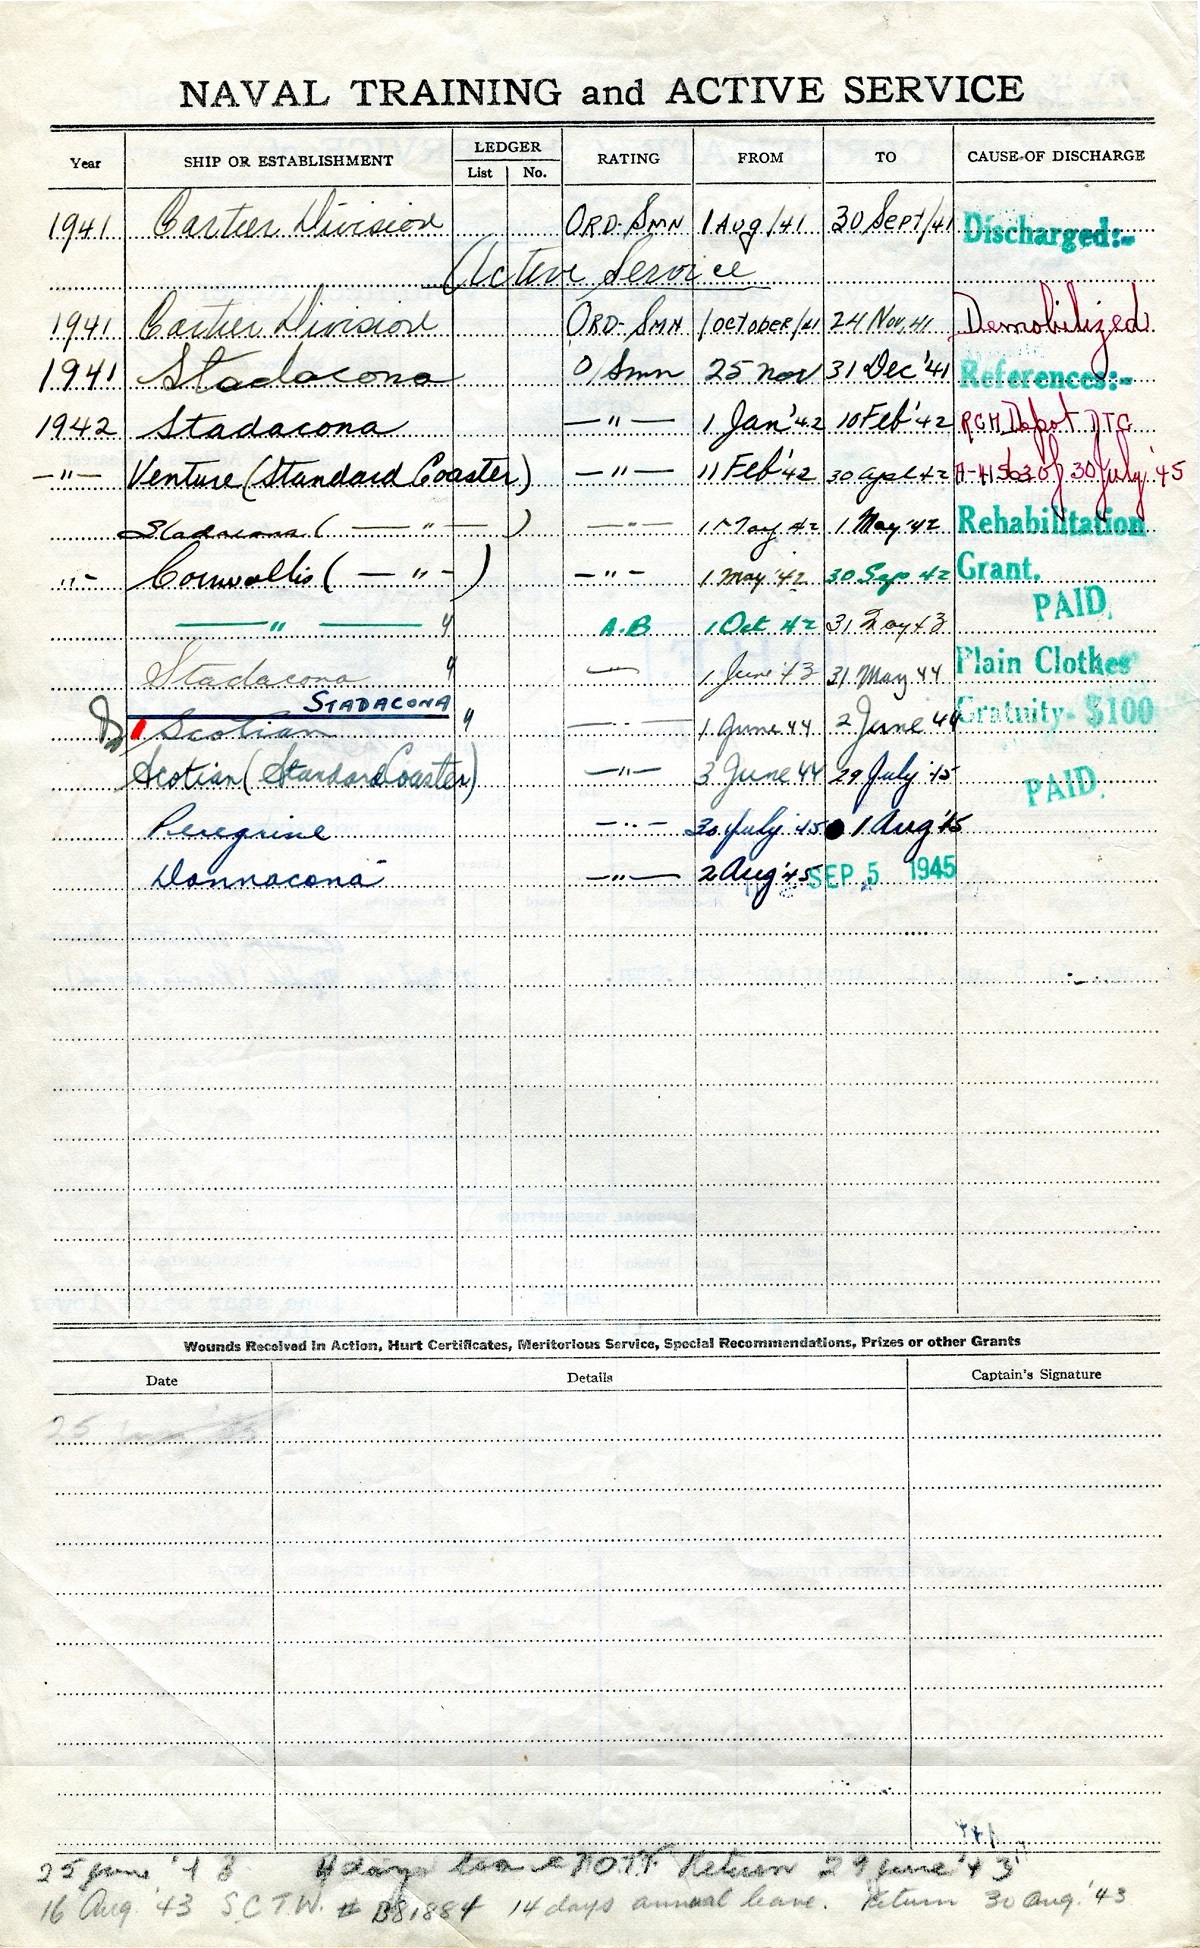 NAVAL TRAINING and ACTIVE SERVICE
Year SHIP OR ESTABLISHMENT LEDGER List No. RATING FROM TO CAUSE OF DISCHARGE
1941 Cartier Division ORD. SMN 1 AUG/41 30 SEPT/41 Discharged:-
Active Service
1941 Cartier Division ORD- SMN 1 OCTOBER/41 24 Nov, 41 Demobilized
1941 Stadacona O/Smn 25 nov 31 Dec '41 References:-
1942 Stadacona —"— 1 Jan '42 10 Feb '42 RCN Depot
—"— Venture (Standard Coaster) —"— 11 Feb '42 30 apl 42 of 30 July '45
Stadacona ( — " — ) —"— 1 May 42 1 May '42 Rehabilitation
-"- Cornwallis ( — " - ) —"— 1 May '42 30 Sep 42 Grant.
PAID.
— " — " A.B 1 Oct 42 31 May 43
Stadacona " — 1 June '43 31 May 44 Plain Clothes
STADACONA
Scotian " —"— 1 June 44 2 June 44 Gratuity- $100
Scotian (Standard Coaster) —"— 3 June 44 29 July '45 PAID.
Peregrine —"— 30 July '45 1 Aug '45
Donnacona —"— 2 Aug '45 SEP 5 1945
Wounds Received in Action, Hurt Certificates, Meritorious Service, Special Recommendations, Prizes or other Grants
Date Details Captain's Signature
25 June '43 4 days Return 29 June '43
16 Aug. '43 S.C.T.W. # B81884 14 days annual leave. Return 30 aug. '43